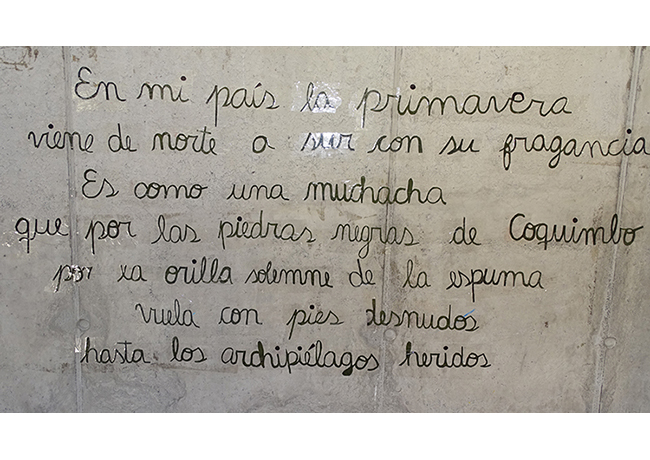 En mi país la primavera
viene de norte a sur con su fragancia
Es como una muchacha
que por las piedras negras de Coquimbo
por la orilla solemne de la espuma
vuela con pies desnudos
hasta los archipiélagos heridos